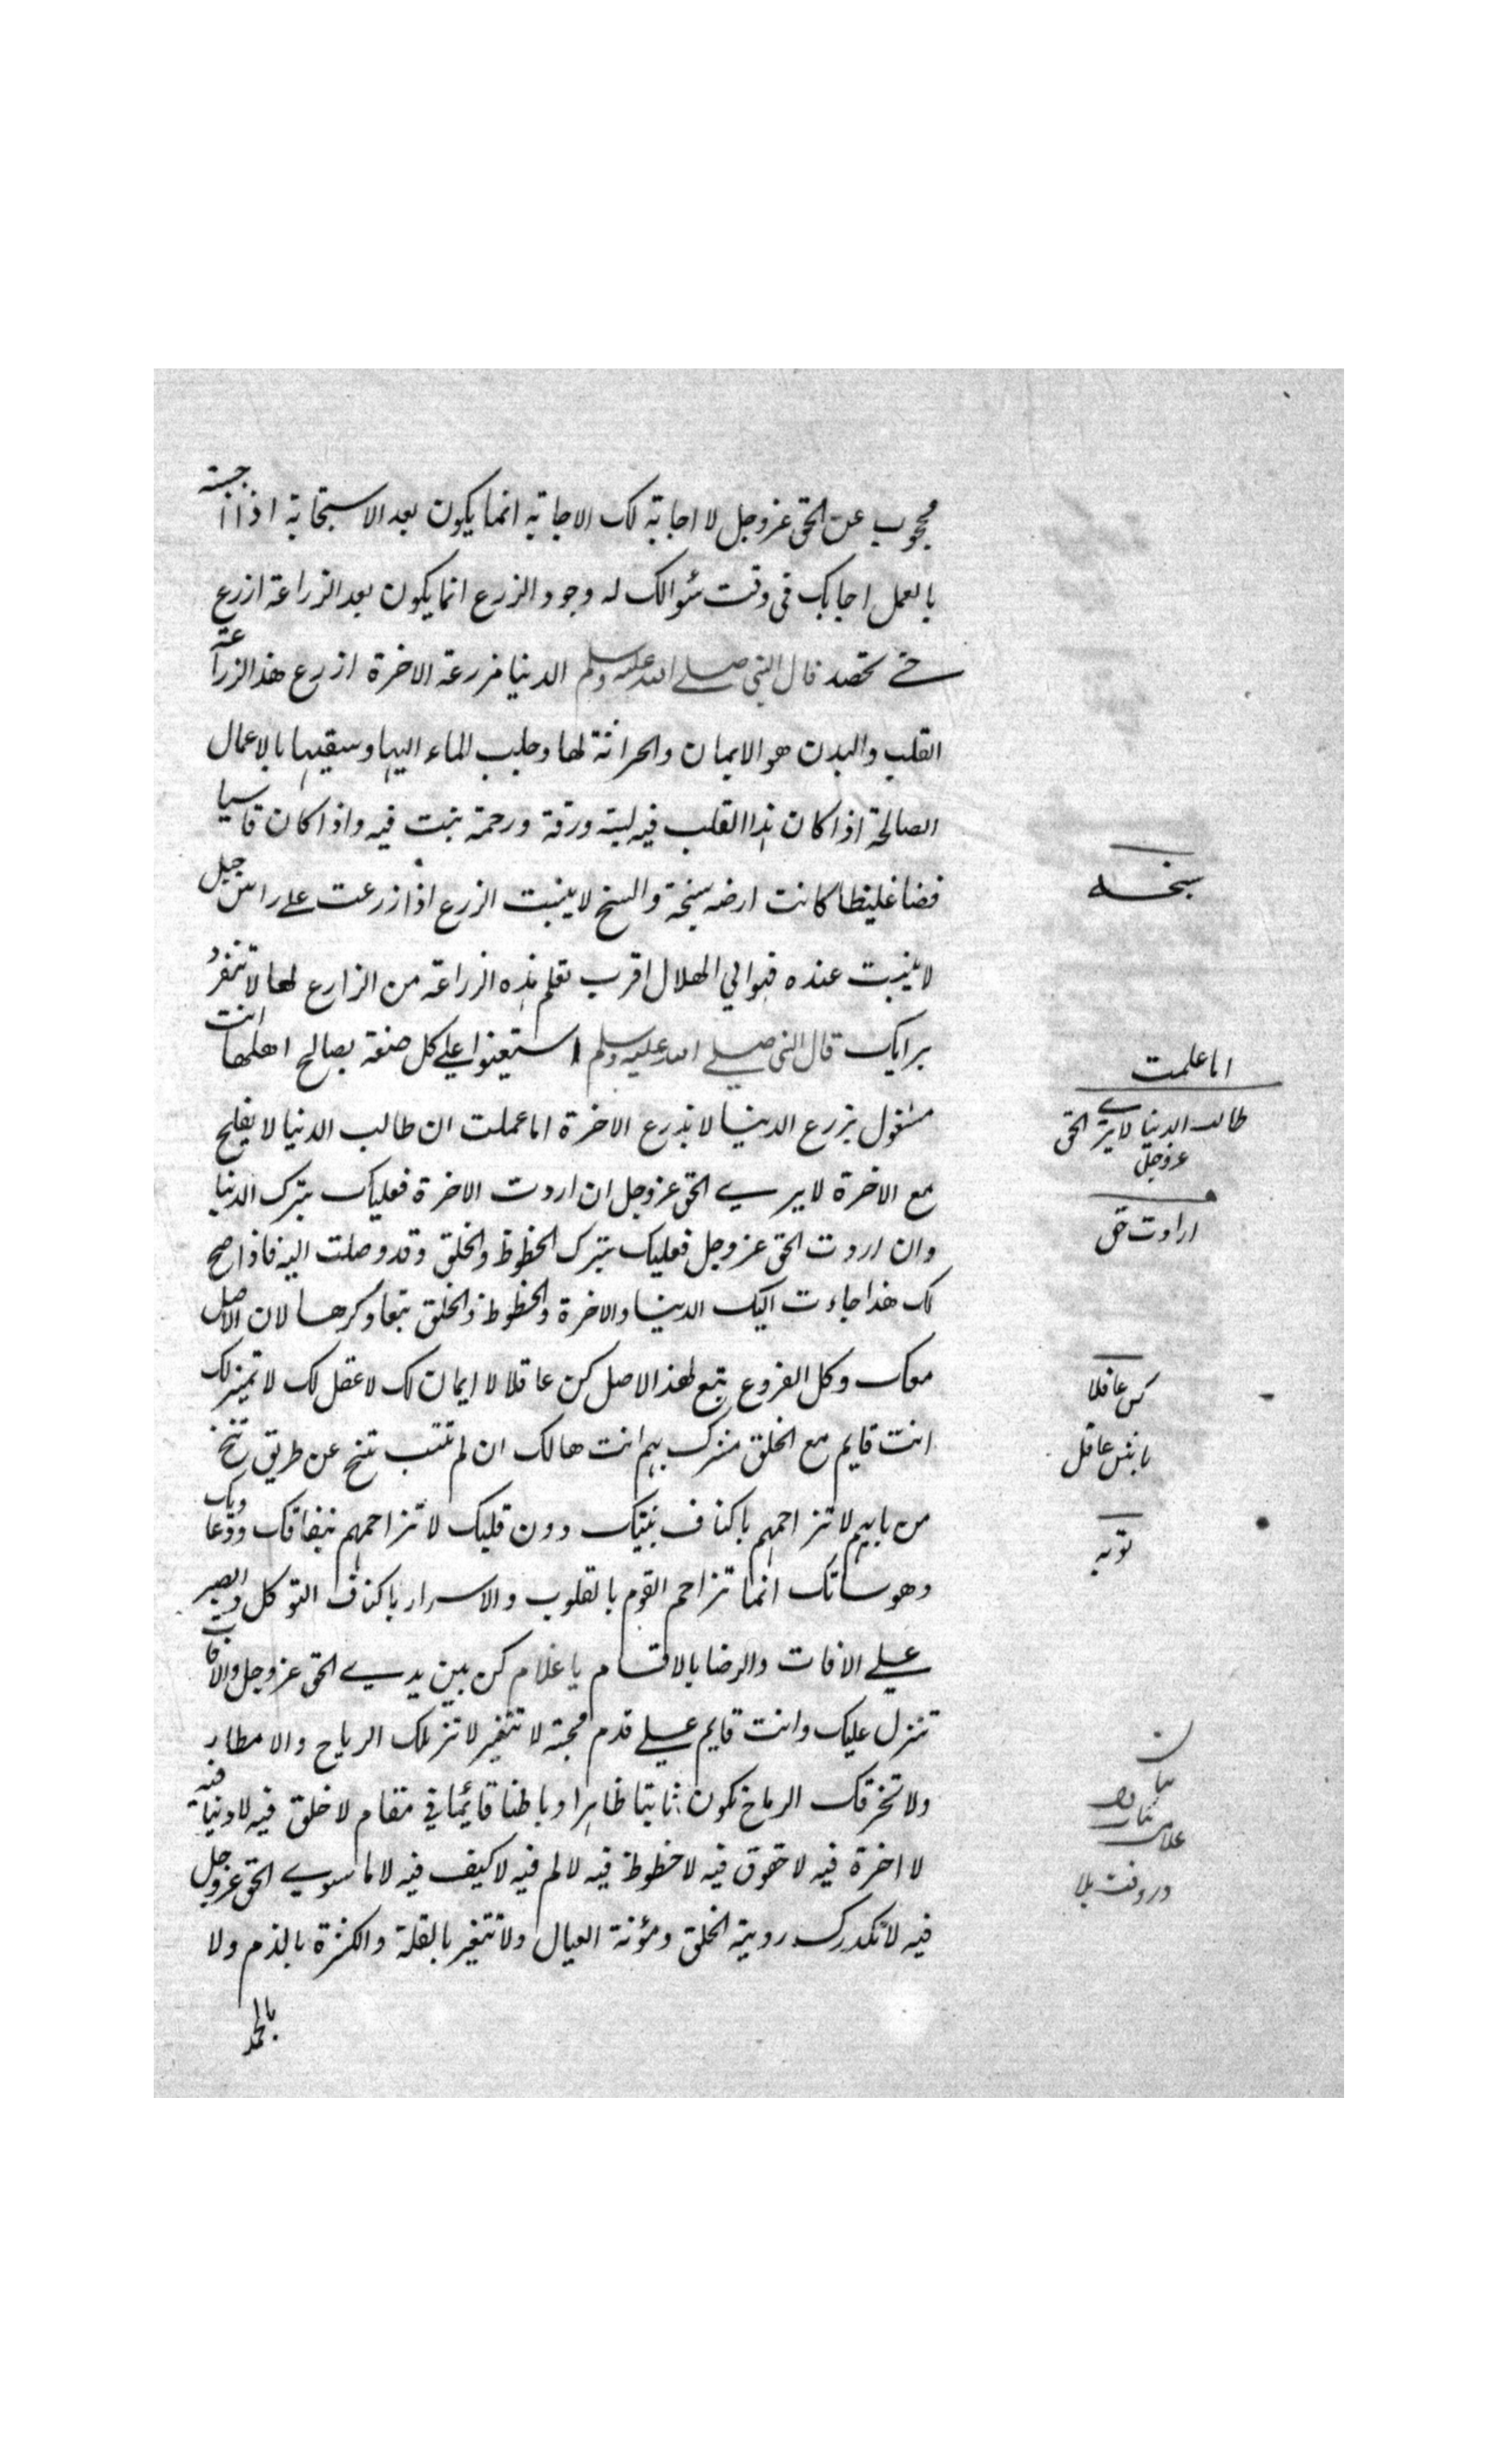 محجوب عن الحق عز وجل لا اجابة لك الاجابة انما يكون بعد الاستجابة اذا اجبته
بالعمل اجابك فى وقت سُوالك له وجود الزرع انما يكون بعد الزراعة ازرع
حتے تحصد قال النبى صلے الله عليه وسلم الدنيا مزرعة الاخرة ازرع هذ الزراعة
القلب والبدن هو الايمان والحراثة لها وجلب الماء اليها وسقيها بالاعمال
الصالحة اذا كان هذا القلب فيه لينة ورقة ورحمة نبت فيه واذا كان قاسيا
فضا غليظا كانت ارضه سبخة والسبخ لا ينبت الزرع اذا زرعت علے راس جبل
لا ينبت عنده فهو الي الهلال اقرب تعلم هذه الزراعة من الزارع لها لا تنفرد
برايك قال النبى صلے الله عليه وسلم استعينوا علے كل صنعة بصالح اهلها انت
مشغول بزرع الدنيا لا بزرع الاخرة اما عملت ان طالب الدنيا لا يفلح
مع الاخرة لا يرے الحق عز وجل ان اردت الاخرة فعليك بترك الدنيا
وان اردت الحق عز وجل فعليك بترك الحظوظ والخلق وقد وصلت اليه فاذا صح
لك هذا جاءت اليك الدنيا والاخرة والحظوظ والخلق تبعا وكرها لان الاصل
معك وكل الفروع تبع لهذ الاصل كن عاقلا لا ايمان لك لا عقل لك لا تميز لك
انت قايم مع الخلق مشرك بهم انت هالك ان لم تتب تنح عن طريق تنح
من بابهم لا تزاحمهم باكناف بنيتك دون قلبك لا تزاحمهم بنفاقك ودعاويك
وهوساتك انما تزاحم القوم بالقلوب والاسرار باكناف التوكل والصبر
علے الافات والرضا بالاقسام يا غلام كن بين يدے الحق عز وجل والافات
تنزل عليك وانت قايم علے قدم محبة لا تتغير لا تزلك الرياح والامطار
ولا تخرقك الرماح تكون ثابتا ظاهرا وباطنا قائيما في مقام لا خلق فيه لا دنيا فيه
لا اخرة فيه لا حقوق فيه لا حظوظ فيه لا لم فيه لا كيف فيه لا ما سوے الحق عز وجل
فيه لا تكدرك روية الخلق ومؤنة العيال ولا تتغير بالقلة والكثرة بالذم ولا
بالحمد
سبخه
اما علمت
طالب الدنيا لا يرے الحق
عز وجل
ارادت حق
كن عاقلا
باش عاقل
توبه
در وقت بلا